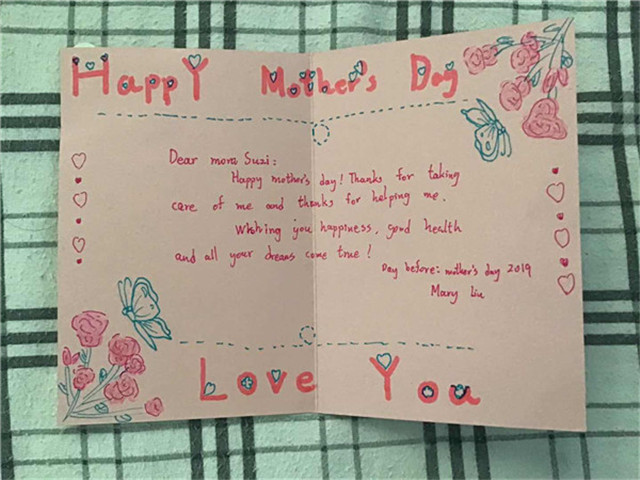 Happy Mother's Day
Dear mom Suzi:
Happy mother's day! Thanks for taking
care of me and thanks for helping me.
Wishing you happiness, good health
and all your dreams come true!
Day before: mother's day 2019
Mary Liu
Love You